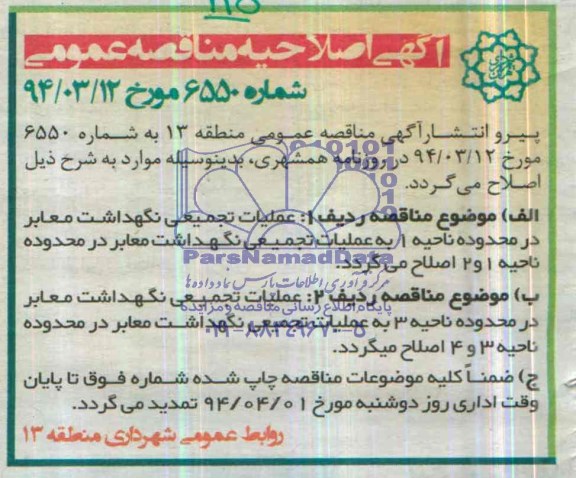 ۱۱۵
آگهی اصلاحیه مناقصه عمومی
شماره ۶۵۵۰ مورخ ۹۴/۰۳/۱۲
پیرو انتشار آگهی مناقصه عمومی منطقه ۱۳ به شماره ۶۵۵۰
مورخ ۹۴/۰۳/۱۲ در روزنامه همشهری، بدینوسیله موارد به شرح ذیل
اصلاح می گردد.
الف) موضوع مناقصه ردیف ۱: عملیات تجمیعی نگهداشت معابر
در محدوده ناحیه ۱ به عملیات تجمیعی نگهداشت معابر در محدوده
ناحیه ۱ و ۲ اصلاح می گردد.
ParsNamadData
مرکز فرآوری اطلاعات پارس نماد داده ها
ب) موضوع مناقصه ردیف ۲: عملیات تجمیعی نگهداشت معابر
پایگاه اطلاع رسانی مناقصه و مزایده
در محدوده ناحیه ۳ به عملیات تجمیعی نگهداشت معابر در محدوده
۰۲۱-۸۸۳۴۹۶۷۰-۵
ناحیه ۳ و ۴ اصلاح میگردد.
ج) ضمناً کلیه موضوعات مناقصه چاپ شده شماره فوق تا پایان
وقت اداری روز دوشنبه مورخ ۹۴/۰۴/۰۱ تمدید می گردد.
روابط عمومی شهرداری منطقه ۱۳